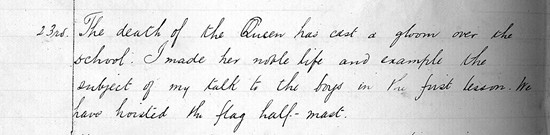 23rd. The death of the Queen has cast a gloom over the
school. I made her noble life and example the
subject of my talk to the boys in the first lesson. We
have hoisted the flag half-mast.